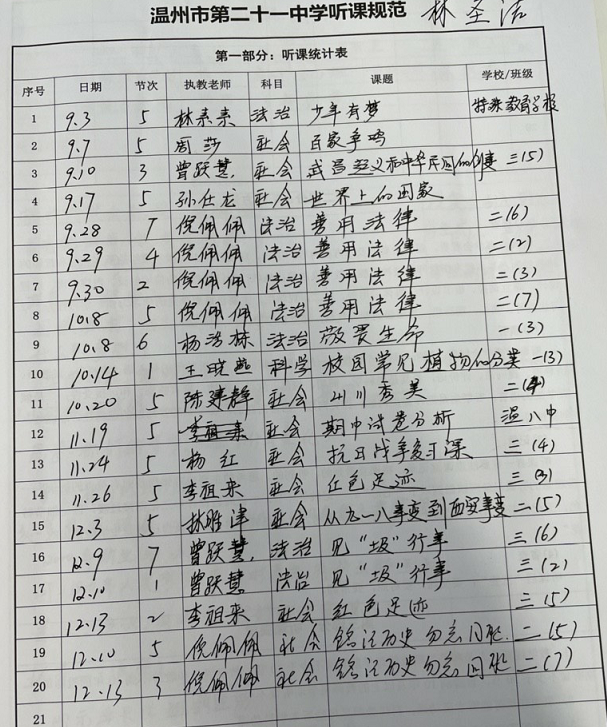 温州市第二十一中学听课规范 林圣洁
第一部分：听课统计表
序号 日期 节次 执教老师 科目 课题 学校/班级
1 9.3 5 林素素 法治 少年有梦 特殊教育学校
2 9.7 5 周莎 社会 百家争鸣
3 9.10 3 曾跃慧 社会 武昌起义和中华民国的创建 三(5)
4 9.17 5 孙仕龙 社会 世界上的国家
5 9.28 7 倪佩佩 法治 善用法律 二(6)
6 9.29 4 倪佩佩 法治 善用法律 二(2)
7 9.30 2 倪佩佩 法治 善用法律 二(3)
8 10.8 5 倪佩佩 法治 善用法律 二(7)
9 10.8 6 杨洁栋 法治 敬畏生命 一(3)
10 10.14 1 王晓燕 科学 校园常见植物的分类 一(3)
11 10.20 5 陈建群 社会 山川秀美 二(4)
12 11.19 5 李祖来 社会 期中试卷分析 温八中
13 11.24 5 杨红 社会 抗日战争复习课 三(4)
14 11.26 5 李祖来 社会 红色足迹 三(3)
15 12.3 5 林胜津 社会 从九一八事变到西安事变 二(5)
16 12.9 7 曾跃慧 法治 见“圾”行事 三(6)
17 12.10 1 曾跃慧 法治 见“圾”行事 三(2)
18 12.13 2 李祖来 社会 红色足迹 三(5)
19 12.10 5 倪佩佩 社会 铭记历史 勿忘国耻 二(5)
20 12.13 3 倪佩佩 社会 铭记历史 勿忘国耻 二(7)
21